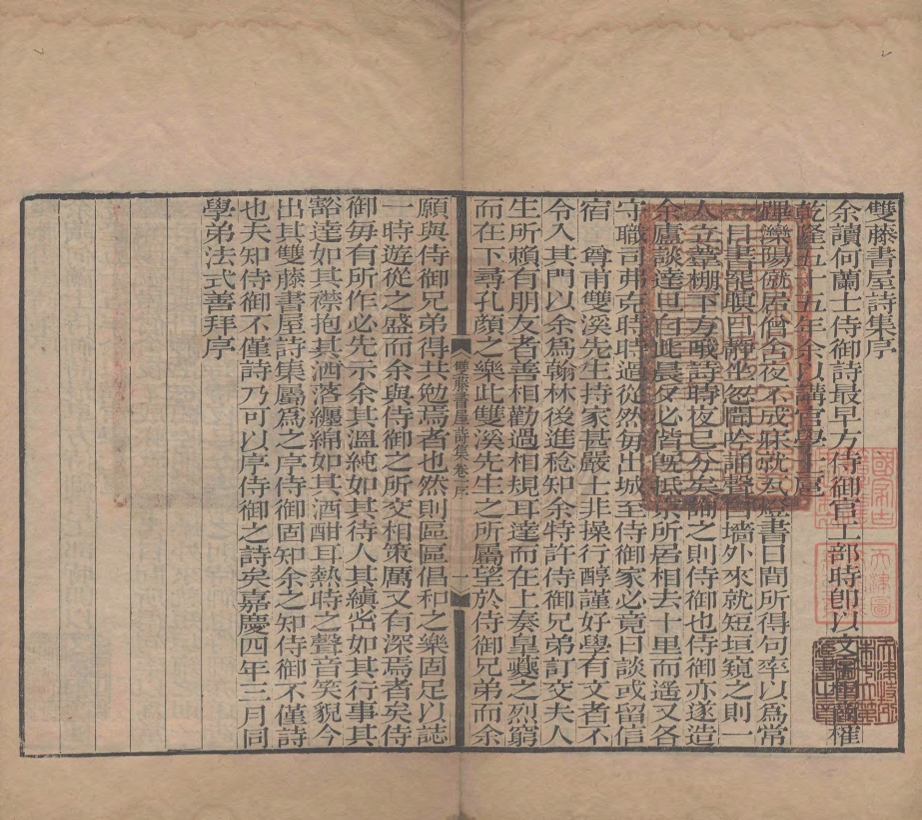 雙藤書屋詩集序
余讀何蘭士侍御詩最早方侍御官工部時卽以文字相商權
乾隆五十五年余以講官學士扈
蹕灤陽僦居僧舍夜不成寐就父燈書日間所得句率以爲常
一日書罷瞑目靜坐忽聞吟誦聲自墻外來就短垣窺之則一
人立葦棚下方哦詩時夜已分矣詢之則侍御也侍御亦遂造
余廬談達旦自此晨夕必偕旣抵京所居相去十里而遙又各
守職司弗克時時過從然每出城至侍御家必竟日談或留信
宿 尊甫雙溪先生持家甚嚴士非操行醇謹好學有文者不
令入其門以余爲翰林後進稔知余特許侍御兄弟訂交夫人
生所賴有朋友者善相勸過相規耳達而在上奏皇夔之烈窮
而在下尋孔顏之樂此雙溪先生之所屬望於侍御兄弟而余
雙藤書屋詩集卷 序 一
願與侍御兄弟得共勉焉者也然則區區倡和之樂固足以誌
一時遊從之盛而余與侍御之所交相策厲又有深焉者矣侍
御每有所作必先示余其溫純如其待人其縝密如其行事其
豁達如其襟抱其洒落纏綿如其酒酣耳熱時之聲音笑貌今
出其雙藤書屋詩集屬爲之序侍御固知余之知侍御不僅詩
也夫知侍御不僅詩乃可以序侍御之詩矣嘉慶四年三月同
學弟法式善拜序